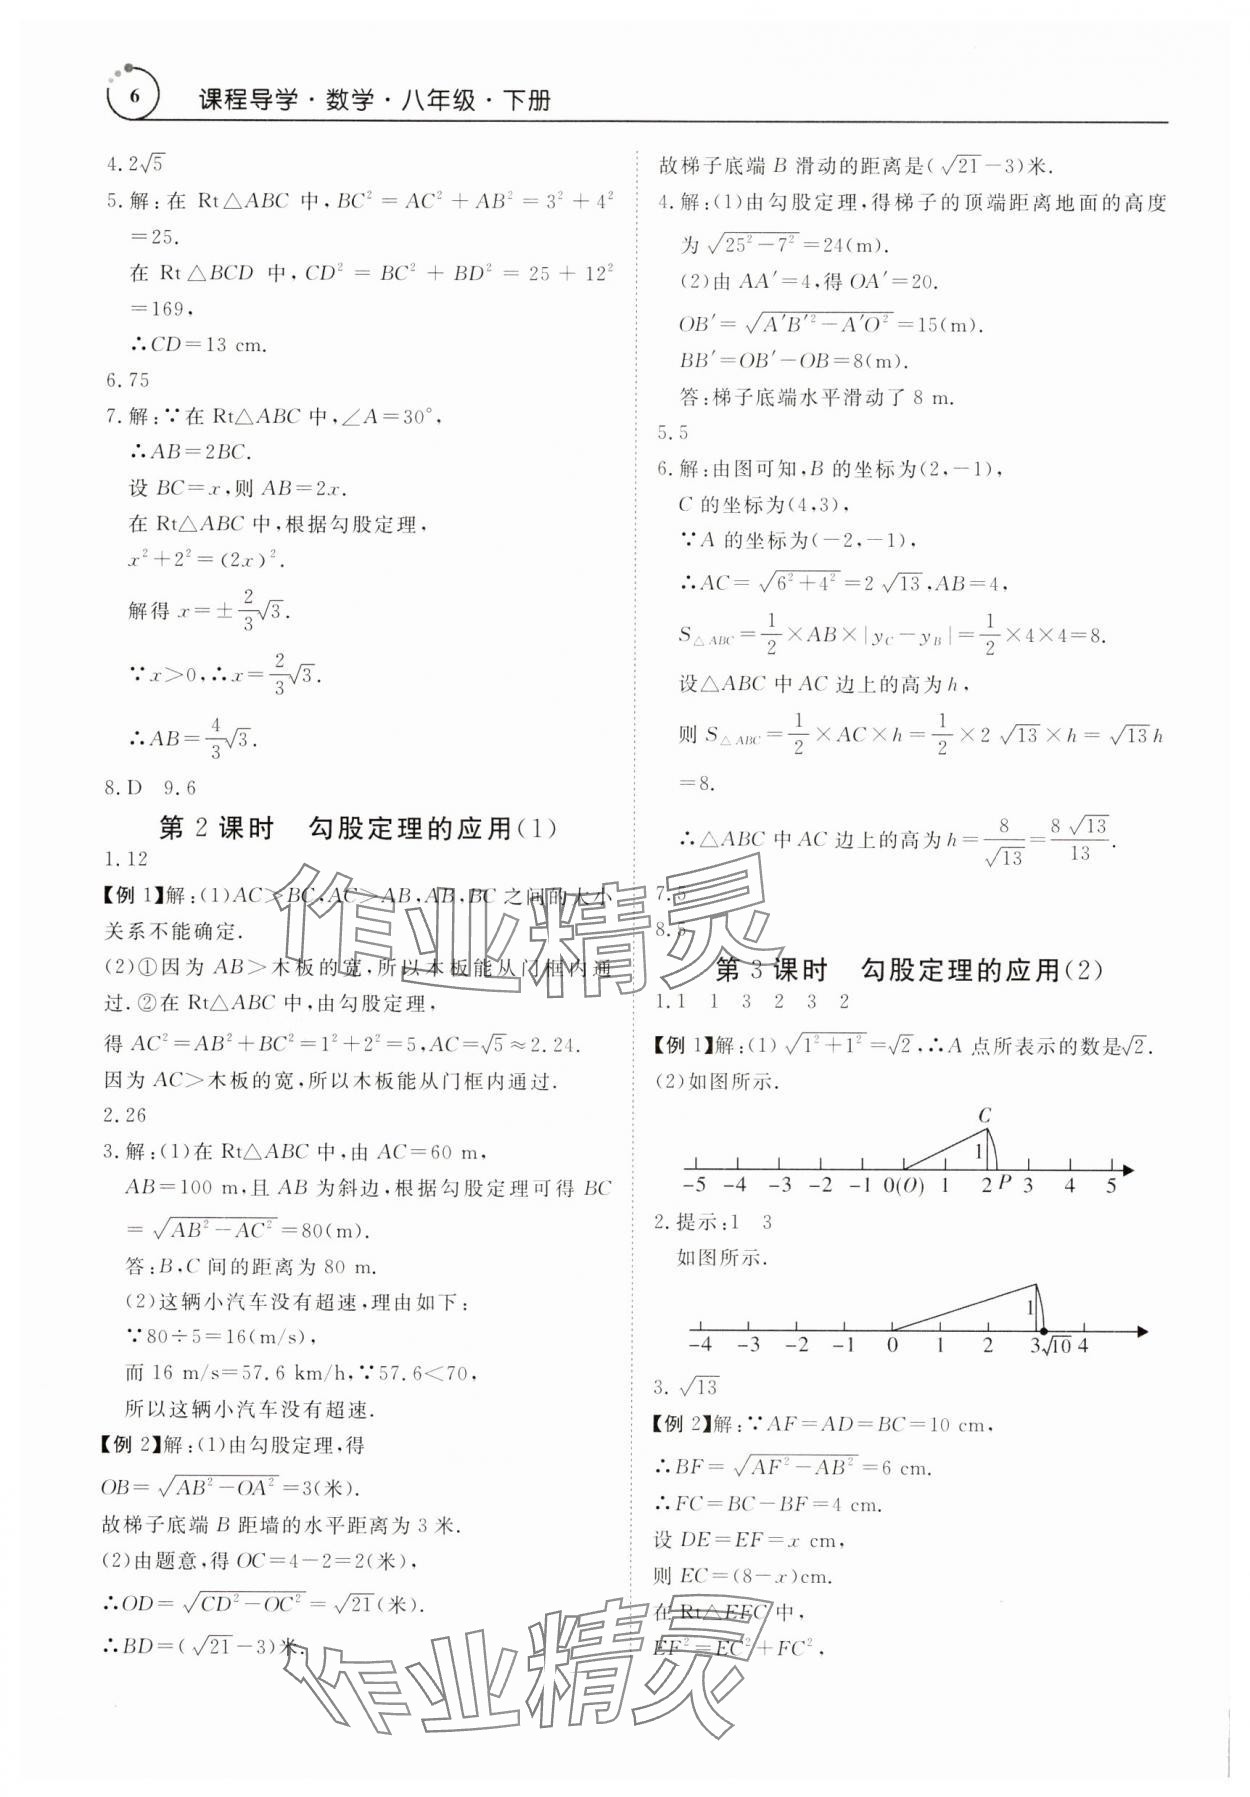 6 课程导学·数学·八年级·下册
4.2√5
5.解:在 Rt△ABC 中,BC²=AC²+AB²=3²+4²
=25.
在 Rt△BCD 中,CD²=BC²+BD²=25+12²
=169,
∴CD=13 cm.
6.75
7.解:∵在 Rt△ABC 中,∠A=30°,
∴AB=2BC.
设 BC=x,则 AB=2x.
在 Rt△ABC 中,根据勾股定理,
x²+2²=(2x)².
解得 x=±2/3√3.
∵x>0,∴x=2/3√3.
∴AB=4/3√3.
8.D 9.6
第 2 课时 勾股定理的应用(1)
1.12
【例 1】解:(1)AC>BC,AC>AB,AB,BC 之间的大小
关系不能确定.
(2)①因为 AB>木板的宽,所以木板能从门框内通
过.②在 Rt△ABC 中,由勾股定理,
得 AC²=AB²+BC²=1²+2²=5,AC=√5≈2.24.
因为 AC>木板的宽,所以木板能从门框内通过.
2.26
3.解:(1)在 Rt△ABC 中,由 AC=60 m,
AB=100 m,且 AB 为斜边,根据勾股定理可得 BC
=√(AB²-AC²)=80(m).
答:B,C 间的距离为 80 m.
(2)这辆小汽车没有超速,理由如下:
∵80÷5=16(m/s),
而 16 m/s=57.6 km/h,∵57.6<70,
所以这辆小汽车没有超速.
【例 2】解:(1)由勾股定理,得
OB=√(AB²-OA²)=3(米).
故梯子底端 B 距墙的水平距离为 3 米.
(2)由题意,得 OC=4-2=2(米),
∴OD=√(CD²-OC²)=√21(米).
∴BD=(√21-3)米.
故梯子底端 B 滑动的距离是(√21-3)米.
4.解:(1)由勾股定理,得梯子的顶端距离地面的高度
为√(25²-7²)=24(m).
(2)由 AA′=4,得 OA′=20.
OB′=√(A′B′²-A′O²)=15(m).
BB′=OB′-OB=8(m).
答:梯子底端水平滑动了 8 m.
5.5
6.解:由图可知,B 的坐标为(2,-1),
C 的坐标为(4,3),
∵A 的坐标为(-2,-1),
∴AC=√(6²+4²)=2√13,AB=4,
S△ABC=1/2×AB×|yC-yB|=1/2×4×4=8.
设△ABC 中 AC 边上的高为 h,
则 S△ABC=1/2×AC×h=1/2×2√13×h=√13h
=8.
∴△ABC 中 AC 边上的高为 h=8/√13=8√13/13.
7.5
8.5
第 3 课时 勾股定理的应用(2)
1.1 1 3 2 3 2
【例 1】解:(1)√(1²+1²)=√2,∴A 点所表示的数是√2.
(2)如图所示.
C
1
-5 -4 -3 -2 -1 0(O) 1 2 P 3 4 5
2.提示:1 3
如图所示.
1
-4 -3 -2 -1 0 1 2 3 √10 4
3.√13
【例 2】解:∵AF=AD=BC=10 cm,
∴BF=√(AF²-AB²)=6 cm.
∴FC=BC-BF=4 cm.
设 DE=EF=x cm,
则 EC=(8-x)cm.
在 Rt△EFC 中,
EF²=EC²+FC²,
作业精灵
作业精灵